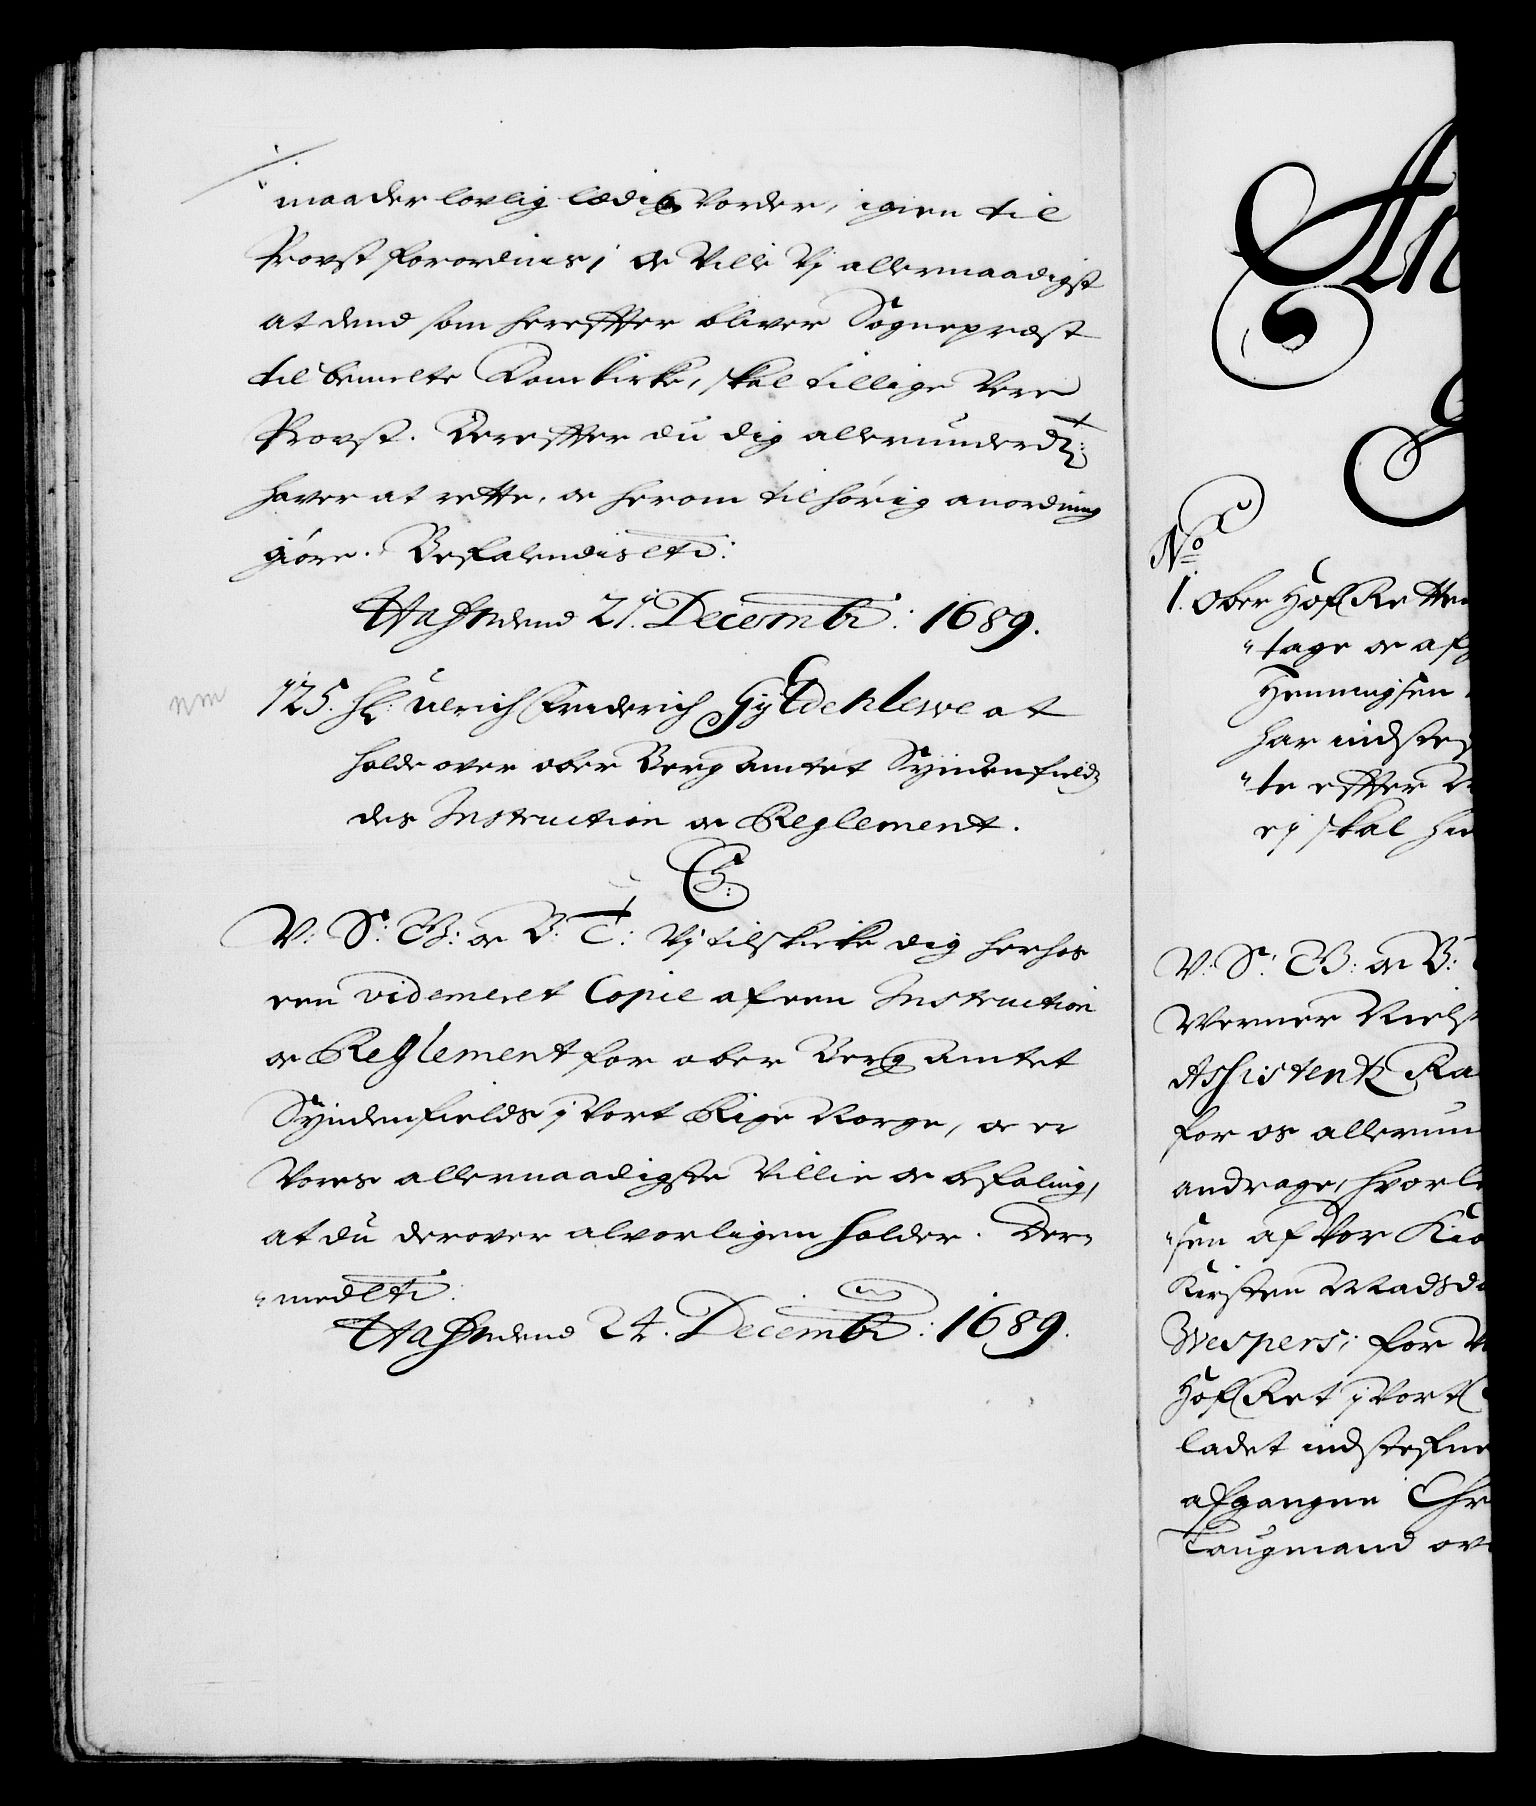 maader lovlig lædig vorder, igien til
Provst forordnes; oc Ville Vj allernaadigst
at dend som hereffter bliver Sognepræst
til bemelte Domkirke, skal tillige Vere
Provst. Dereffter du dig allerunderdt:
haver at rette, oc herom tilhörig anordning
giöre. Befalendis etc:
Hafn dend 21. Decembr: 1689.
nm
125. Hr: Ulrich Friderich Gyldenlewe at
holde over ober Berg amtet Syndenfields
des Instruction oc Reglement.
C5:
V: S: G: oc B: T: Vj tilskicke dig herhos
een videmeret Copie af een Instruction
oc Reglement for ober Berg amtet
Syndenfields j Vort Rige Norge, oc er
Vores allernaadigste Villie oc befaling,
at du derover alvorligen holder. Der-
"med etc:
Hafn dend 24. Decembr: 1689.
An
No
1. Ober Hof Retten
"tage oc af
Hemmingsen
har indstef
"te effter
ej skal
V: S: G: oc B:
Werner Niels
Assistentz Ra
for os allerun
andrage, hvorle
"sen af Vor Kiö
Kirsten Madsda
Wespers; for
Hof Ret j Vort
ladet indstefne
afgangne Chr
Laugmand ov